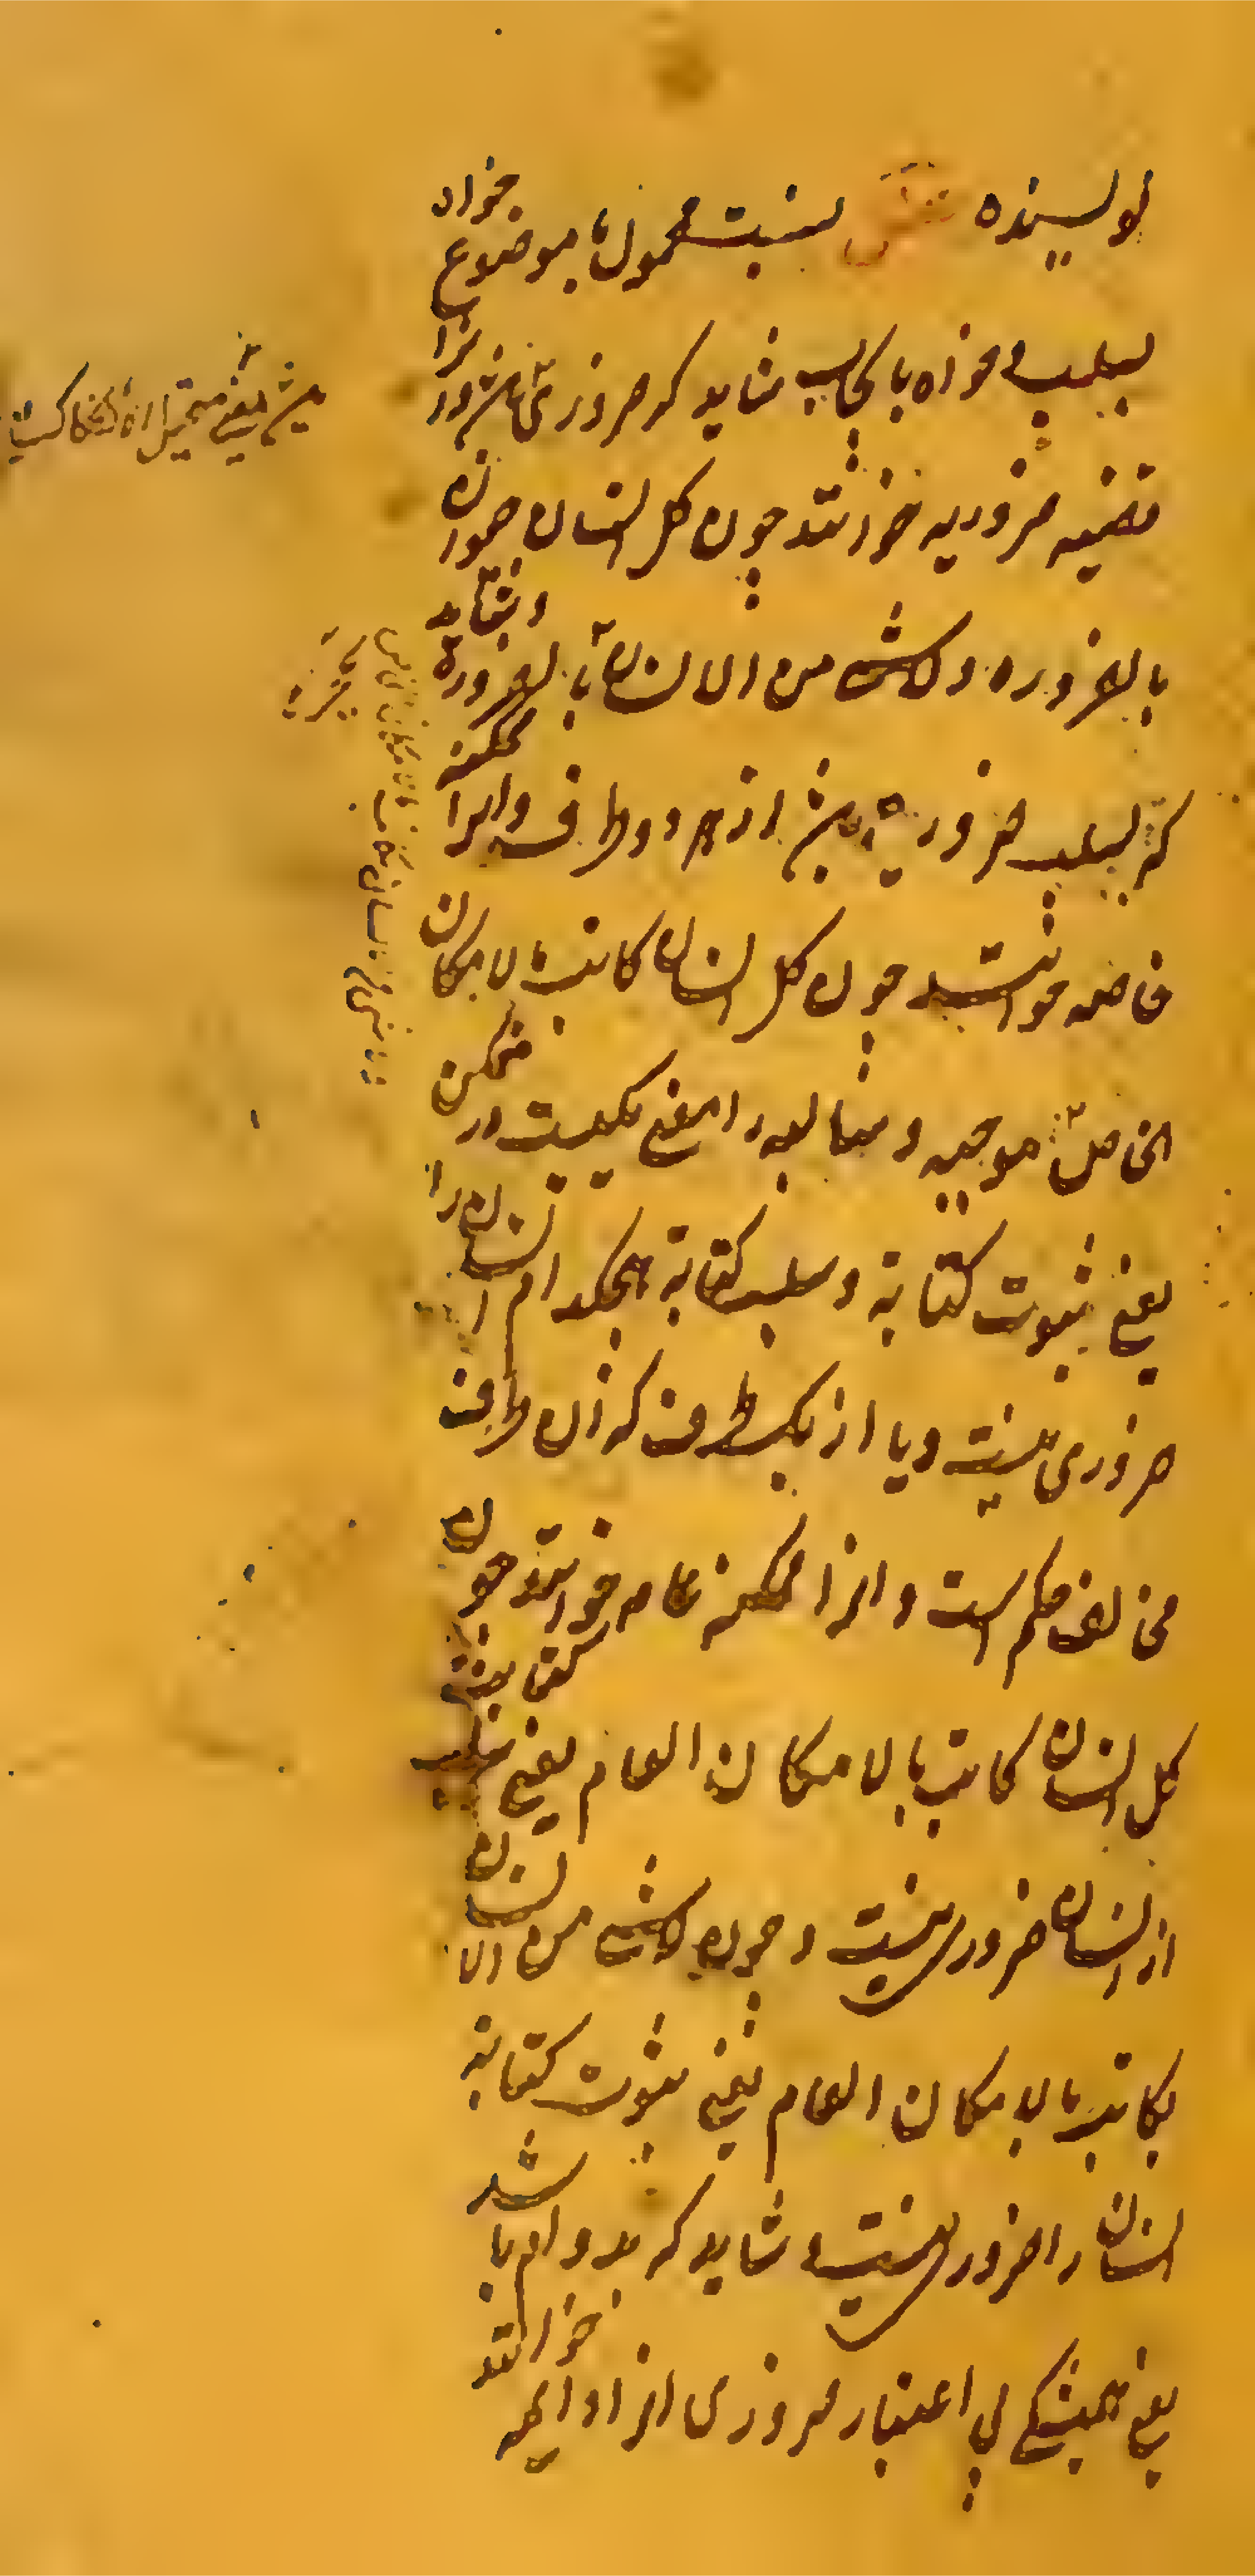 نویسنده فصل نسبت محمول بموضوع خواه
بسلب و خواه بایجاب شاید که ضروری باشد و آنرا
قضیه ضروریه خوانند چون کل انسان حیوان
بالضروره و لا شی من الانسان بالضرورة و شاید
که بسلب ضرورت باشد از هر دو طرف و آنرا ممکنه
خاصه خوانند چون کل انسان کاتب بالامکان
الخاص موجبه و سالبه را معنی یکیست در ممکن
یعنی ثبوت کتابة و سلب کتابة هیچکدام انسان را
ضروری نیست و یا از یکطرف که آن طرف
مخالف حکم است و آنرا ممکنه عامه خوانند چون
کل انسان کاتب بالامکان العام یعنی سلب کتابت
از انسان ضروری نیست و چون لا شی من الانسان
بکاتب بالامکان العام یعنی ثبوت کتابة
انسان را ضروری نیست و شاید که بدوام باشد
یعنی همیشگی بی اعتبار ضروری آنرا دایمه خوانند